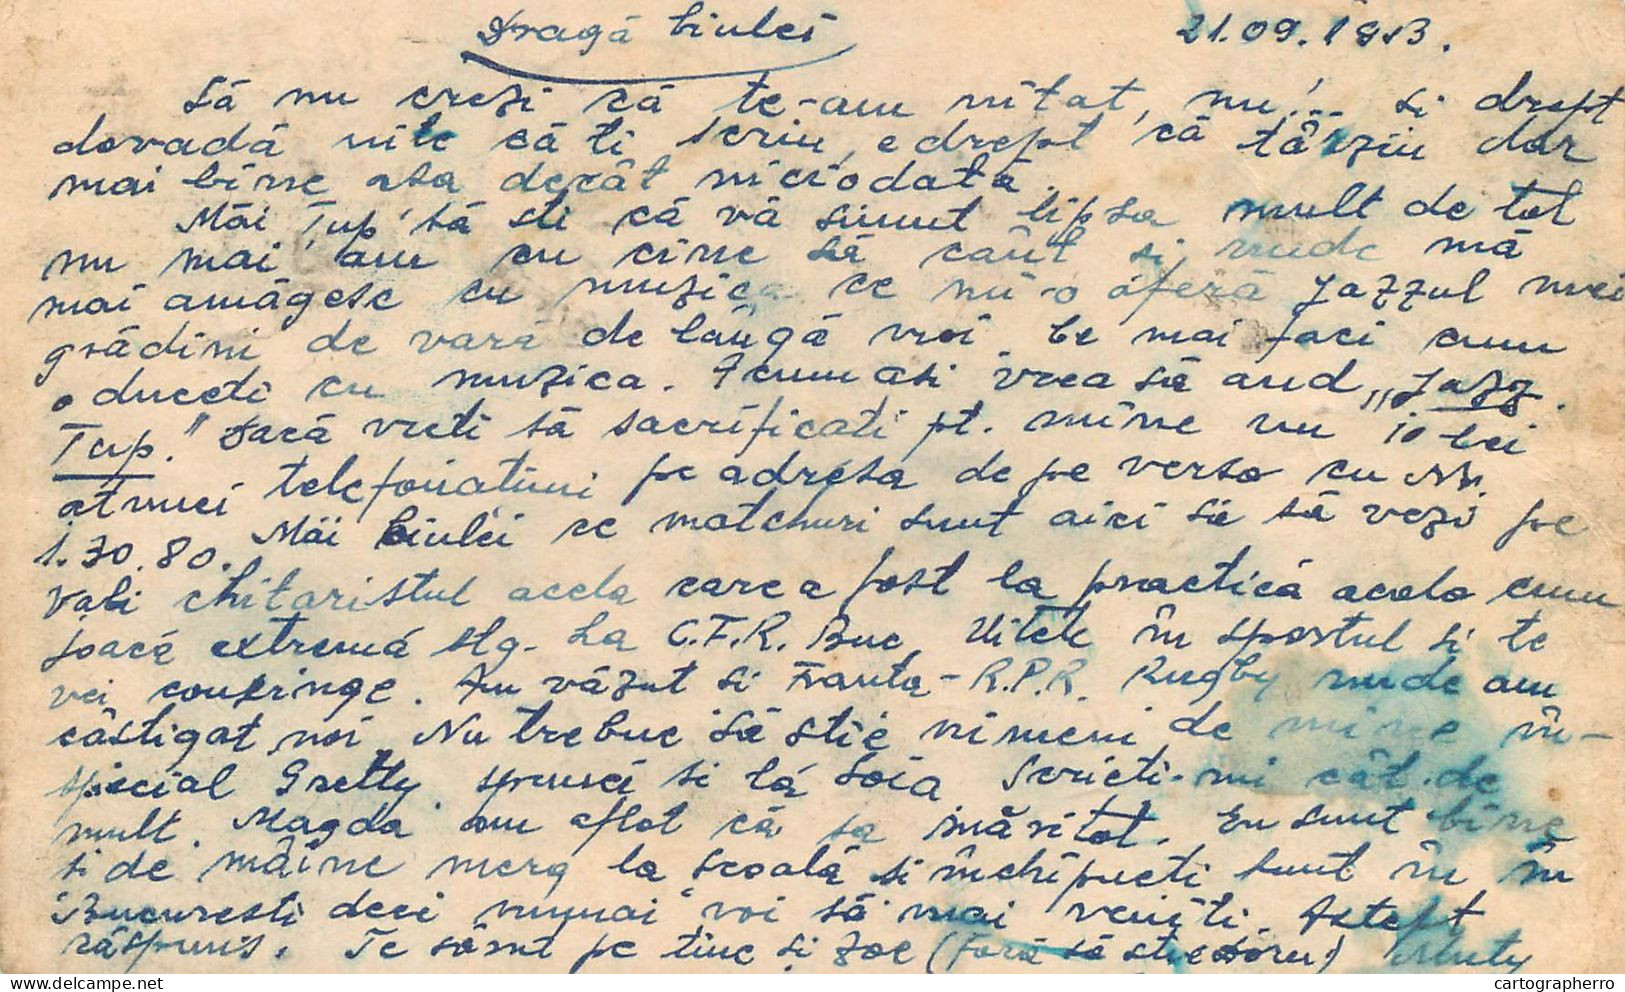 Dragă Ciulei 21.09.1953.
Să nu crezi că te-am uitat, nu!.. si drept
dovadă uite că ti scriu, e drept că târziu dar
mai bine asa decât niciodată.
Măi Tup' să sti că vă simt lipsa mult de tot
nu mai am cu cine să cânt si unde mă
mai amăgesc cu muzica ce mi-o oferă Jazzul unei
grădini de vară de lângă noi. Ce mai faci cum
o duceti cu muzica. Acum asi vrea să aud „Jazz.
Tup." Dacă vreti să sacrificati pt. mine un 10 lei
atunci telefonatimi pe adresa de pe verso cu Nr.
1.70.80. Măi Ciulei ce matchuri sunt aici să să vezi pe
Vali chitaristul acela care a fost la practică acolo cum
joacă extremă stg. La C.F.R. Buc. Uitete în sportul si te
vei convinge. Am văzut si Franta - R.P.R. Rugby unde am
câstigat noi. Nu trebue să stie nimeni de mine în-
special Gretty. spunei si lá Soia Scrieti-mi cât de
mult. Magda am aflat că sa măritat. Eu sunt bine
si de mâine merg la scoală si închipueti sunt în în
Bucuresti deci numai voi să mai veniti. Astept
răspuns. Te sărut pe tine si Zoe (fără să stie Doru) Muty
cartographerro